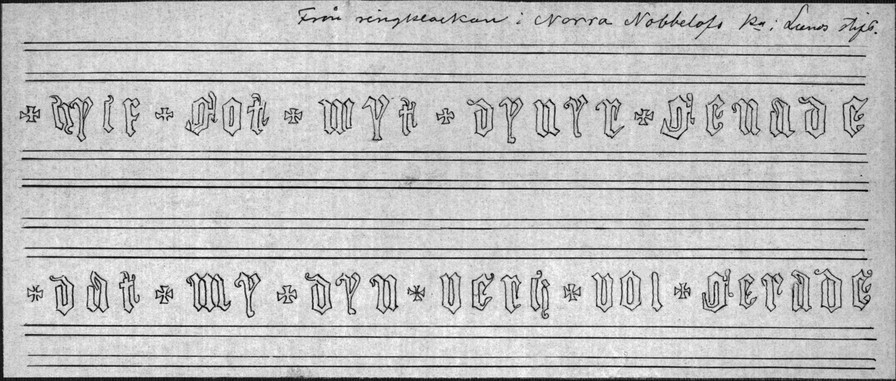 Från ringklockan i Norra Nobbelöfs ka i Lunds stift.
✠ hylf ✠ Got ✠ myt ✠ dynyr ✠ Genade
✠ dat ✠ my ✠ dyn ✠ verk ✠ vol ✠ Gerade